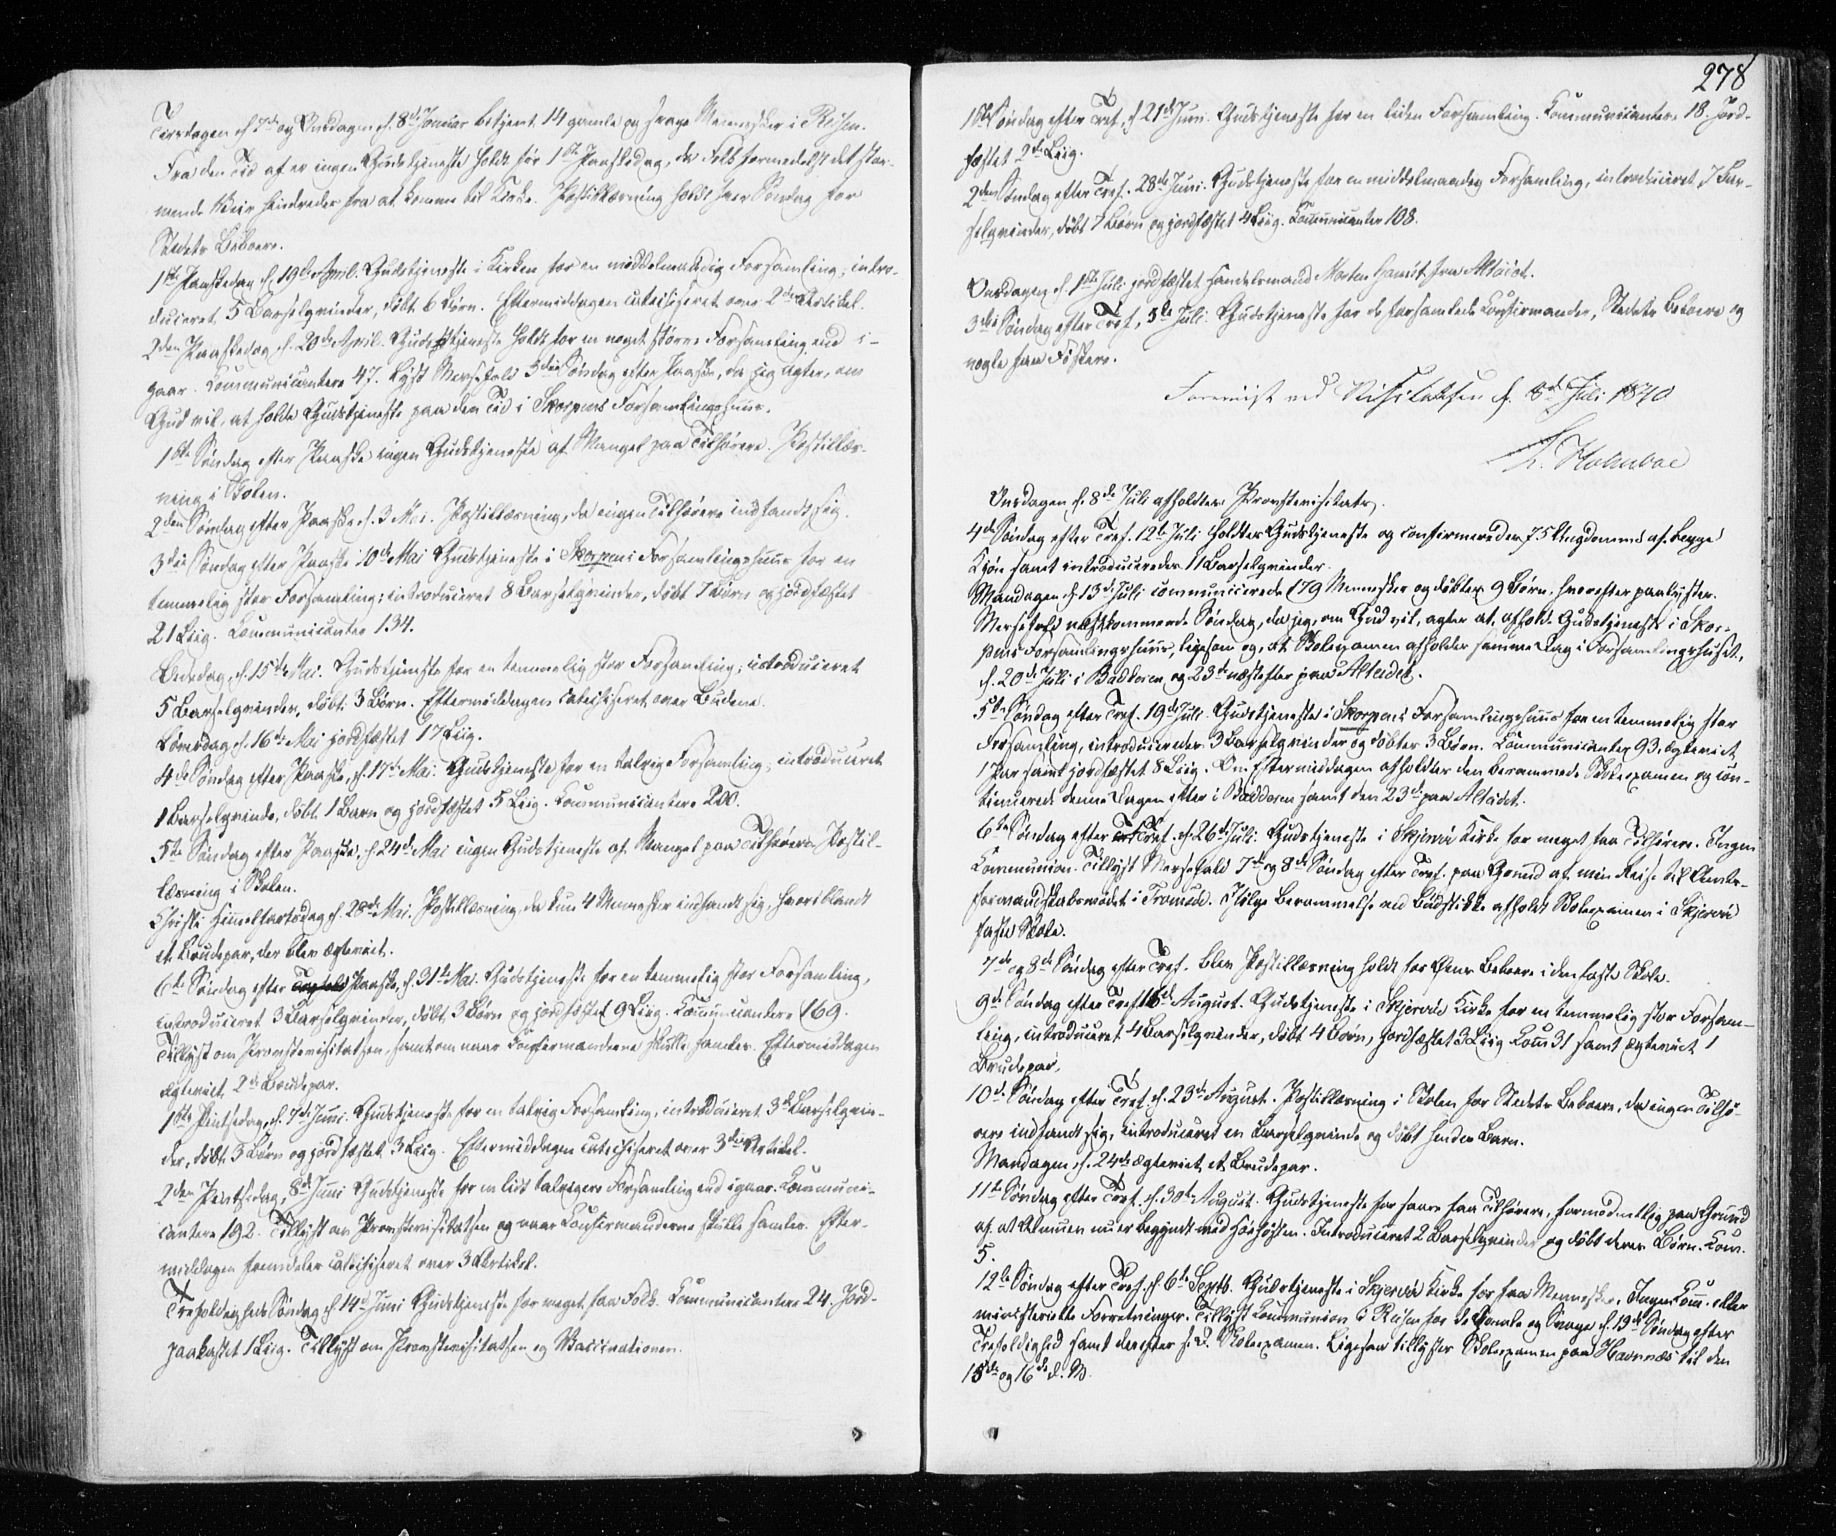 Tirsdagen d. 7de og Onsdagen d. 8de Januar betjent 14 gamle og svage Mennesker i Reisen.
Fra den Tid af er ingen Gudstjeneste holdt før 1ste Paaskedag, da Folk formedelst det stor-
mende Veir hindredes fra at komme til Kirke. Postillæsning holdt hver Søndag for
Stedets Beboere.
1ste Paaskedag d. 19de April. Gudstjeneste i Kirken for en middelmaadig Forsamling; intro-
duceret 5 Barselqvinder, døbt 6 Børn. Eftermiddagen catechiseret over 2den Artikel.
2den Paaskedag d. 20de April. Gudstjeneste holdt for en noget større Forsamling end i-
gaar. Communicantere 47. Lyst Messefald 3die Søndag efter Paaske, da jeg agter, om
Gud vil, at holde Gudstjeneste paa den Tid i Skorpens Forsamlingshuus.
1ste Søndag efter Paaske ingen Gudstjeneste af Mangel paa Tilhørere. Postillæs-
ning i Skolen.
2den Søndag efter Paaske d. 3 Mai. Postillæsning, da ingen Tilhørere indfandt sig.
3die Søndag efter Paaske 10de Mai Gudstjeneste i Skorpens Forsamlingshuus for en
temmelig stor Forsamling; introduceret 8 Barselqvinder, døbt 7 Børn og jordfæstet
21 Liig. Communicanter 134.
Bededag, d. 15de Mai. Gudstjeneste for en temmelig stor Forsamling; introduceret
5 Barselqvinder, døbt 3 Børn. Eftermiddagen catechiseret over Budene.
Løverdag d. 16de Mai jordfæstet 17 Liig.
4de Søndag efter Paaske, d. 17de Mai. Gudstjeneste for en talrig Forsamling; introduceret
1 Barselqvinde, døbt 1 Barn og jordfæstet 5 Liig. Communicantere 200.
5te Søndag efter Paaske, d. 24de Mai ingen Gudstjeneste af Mangel paa Tilhørere. Postil-
læsning i Skolen.
Christi Himmelfartsdag d. 28de Mai. Postillæsning, da kun 4 Mennesker indfandt sig, hvoriblandt
et Brudepar, der blev ægteviet.
6te Søndag efter Paaske, d. 31te Mai. Gudstjeneste for en temmelig stor Forsamling,
introduceret 3 Barselqvinder, døbt 3 Børn og jordfæstet 9 Liig. Communicantere 169.
Tillyst om Provstevisitatsen, samt om naar Confirmanderne skulle samles. Eftermiddagen
ægteviet 2de Brudepar.
1ste Pintsedag, d. 7de Juni. Gudstjeneste for en talrig Forsamling, introduceret 3de Barselqvin-
der, døbt 3 Børn og jordfæstet 3 Liig. Eftermiddagen catechiseret over 3die Artikel.
2den Pintsedag, 8de Juni Gudstjeneste for en lidt talrigere Forsamling end igaar. Communi-
cantere 192. Tillyst om Provstevisitatsen og naar Confirmanderne skulle samles. Efter-
middagen fremdeles catechiseret over 3 Artikel.
Trefoldigheds Søndag d. 14de Juni Gudstjeneste for meget faa Folk. Communicantere 24. Jord-
paakastet 1 Liig. Tillyst om Provstevisitatsen og Vaccinationen.
278
1ste Søndag efter Tref. d. 21de Juni. Gudstjeneste for en liden Forsamling. Communicantere 18. Jord-
fæstet 2de Liig.
2den Søndag efter Tref. 28de Juni. Gudstjeneste for en middelmaadig Forsamling, introduceret 7 Bar-
selqvinder, døbt 7 Børn og jordfæstet 4 Liig. Communicanter 108.
Onsdagen d. 1ste Juli jordfæstet Handelsmand Morten fra Alteidet.
3die Søndag efter Tref, 5te Juli. Gudstjeneste for de forsamlede Confirmander, Stedets Beboere og
nogle faa Fiskere.
Foreviist ved Visitatsen d. 8de Juli 1840
Holmboe
Onsdagen d. 8de Juli afholdtes Provstevisitats.
4de Søndag efter Tref. 12te Juli holdtes Gudstjeneste og confirmeredes 75 Ungdomme af begge
Kjøn samt introduceredes 11 Barselqvinder.
Mandagen d. 13de Juli communicerede 179 Mennesker og døbtes 9 Børn, hvorefter paalystes
Messefald næstkommende Søndag, da jeg, om Gud vil, agter at afholde Gudstjeneste i Skor-
pens Forsamlingshuus, ligesom og, at Skoleexamen afholdes samme Dag i Forsamlingshuset,
d. 20de Juli i Badderen og 23de næstefter paa Alteidet.
5te Søndag efter Tref. 19de Juli Gudstjeneste i Skorpens Forsamlingshuus for en temmelig stor
Forsamling, introduceredes 3 Barselqvinder og døbtes 3 Børn. Communicanter 93, ægteviet
1 Par samt jordfæstet 8 Liig. Om Eftermiddagen afholdtes den berammede Skoleexamen og con-
tinuerede denne Dagen efter i Badderen samt den 23de paa Alteidet.
6te Søndag efter Tref. d. 26de Juli. Gudstjeneste i Skjervø Kirke for meget faa Tilhørere. Ingen
Communion. Tillyst Messefald 7de og 8de Søndag efter Tref. paa Grund af min Reise til Amts-
formandskabsmødet i Tromsøe. Ifølge Berammelse ved Budstikke afholdt Skoleexamen i Skjervø
faste Skole.
7de og 8de Søndag efter Tref. blev Postillæsning holdt for Øens Beboere i den faste Skole.
9de Søndag efter Tref. 16de August. Gudstjeneste i Skjervø Kirke for en temmelig stor Forsam-
ling, introduceret 4 Barselqvinder, døbt 4 Børn, jordfæstet 3 Liig Com 31 samt ægteviet 1
Brudepar.
10de Søndag efter Tref. d. 23de August. Postillæsning i Skolen for Stedets Beboere, da ingen Tilhø-
rere indfandt sig, introduceret en Barselqvinde og døbt hendes Barn.
Mandagen d. 24de ægteviet et Brudepar.
11te Søndag efter Tref. d. 30te August. Gudstjeneste for saare faa Tilhørere, formodentlig paa Grund
af, at Almuen nu er begyndt med Høehøsten. Introduceret 2 Barselqvinder og døbt deres Børn. Com.
5.
12te Søndag efter Tref. d. 6te Septb. Gudstjeneste i Skjervø Kirke for faa Mennesker. Ingen Com. eller
ministerielle Forretninger. Tillyst Communion i Reisen for de Gamle og Svage d. 13de Søndag efter
Trefoldighed samt derefter s. D. Skoleexamen. Ligesaa tillystes Skoleexamen paa Havnnæs til den
15de og 16de d. M.